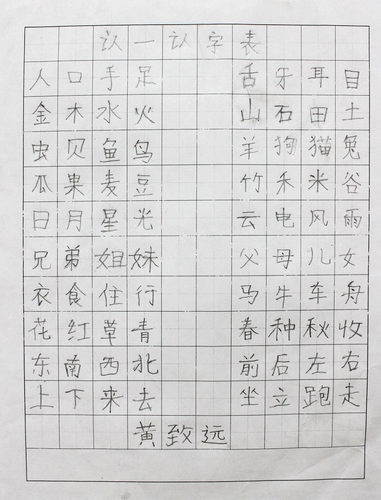 认一认字表
人口手足 舌牙耳目
金木水火 山石田土
虫贝鱼鸟 羊狗猫兔
瓜果麦豆 竹禾米谷
日月星光 云电风雨
兄弟姐妹 父母儿女
衣食住行 马牛车舟
花红草青 春种秋收
东南西北 前后左右
上下来去 坐立跑走
黄致远